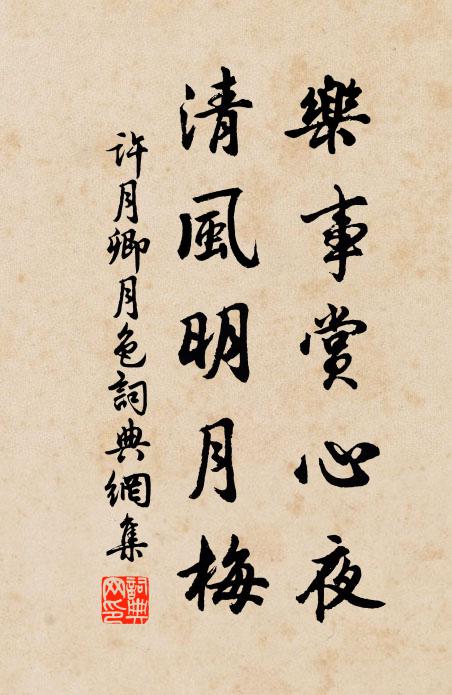 樂事賞心夜
清風明月梅
許月卿月色詞典網集
詞典網印